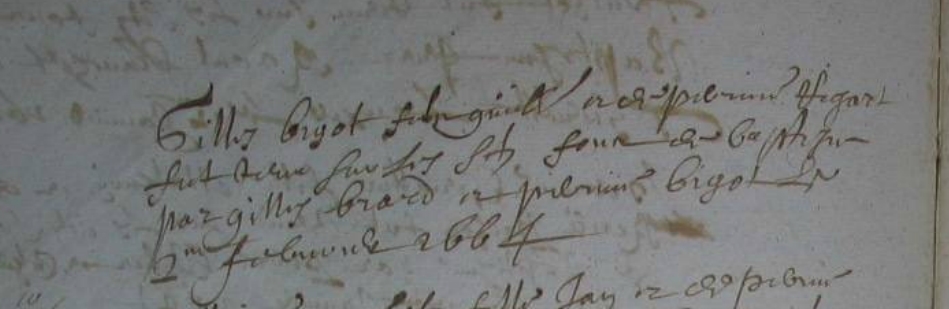 Gilles bigot filz guille et de perrine Regart
fut tenu sur les st fons de baptesme
par gilles brard et perrine bigot le
2me febvrier 1664
filz Jan et de perrine